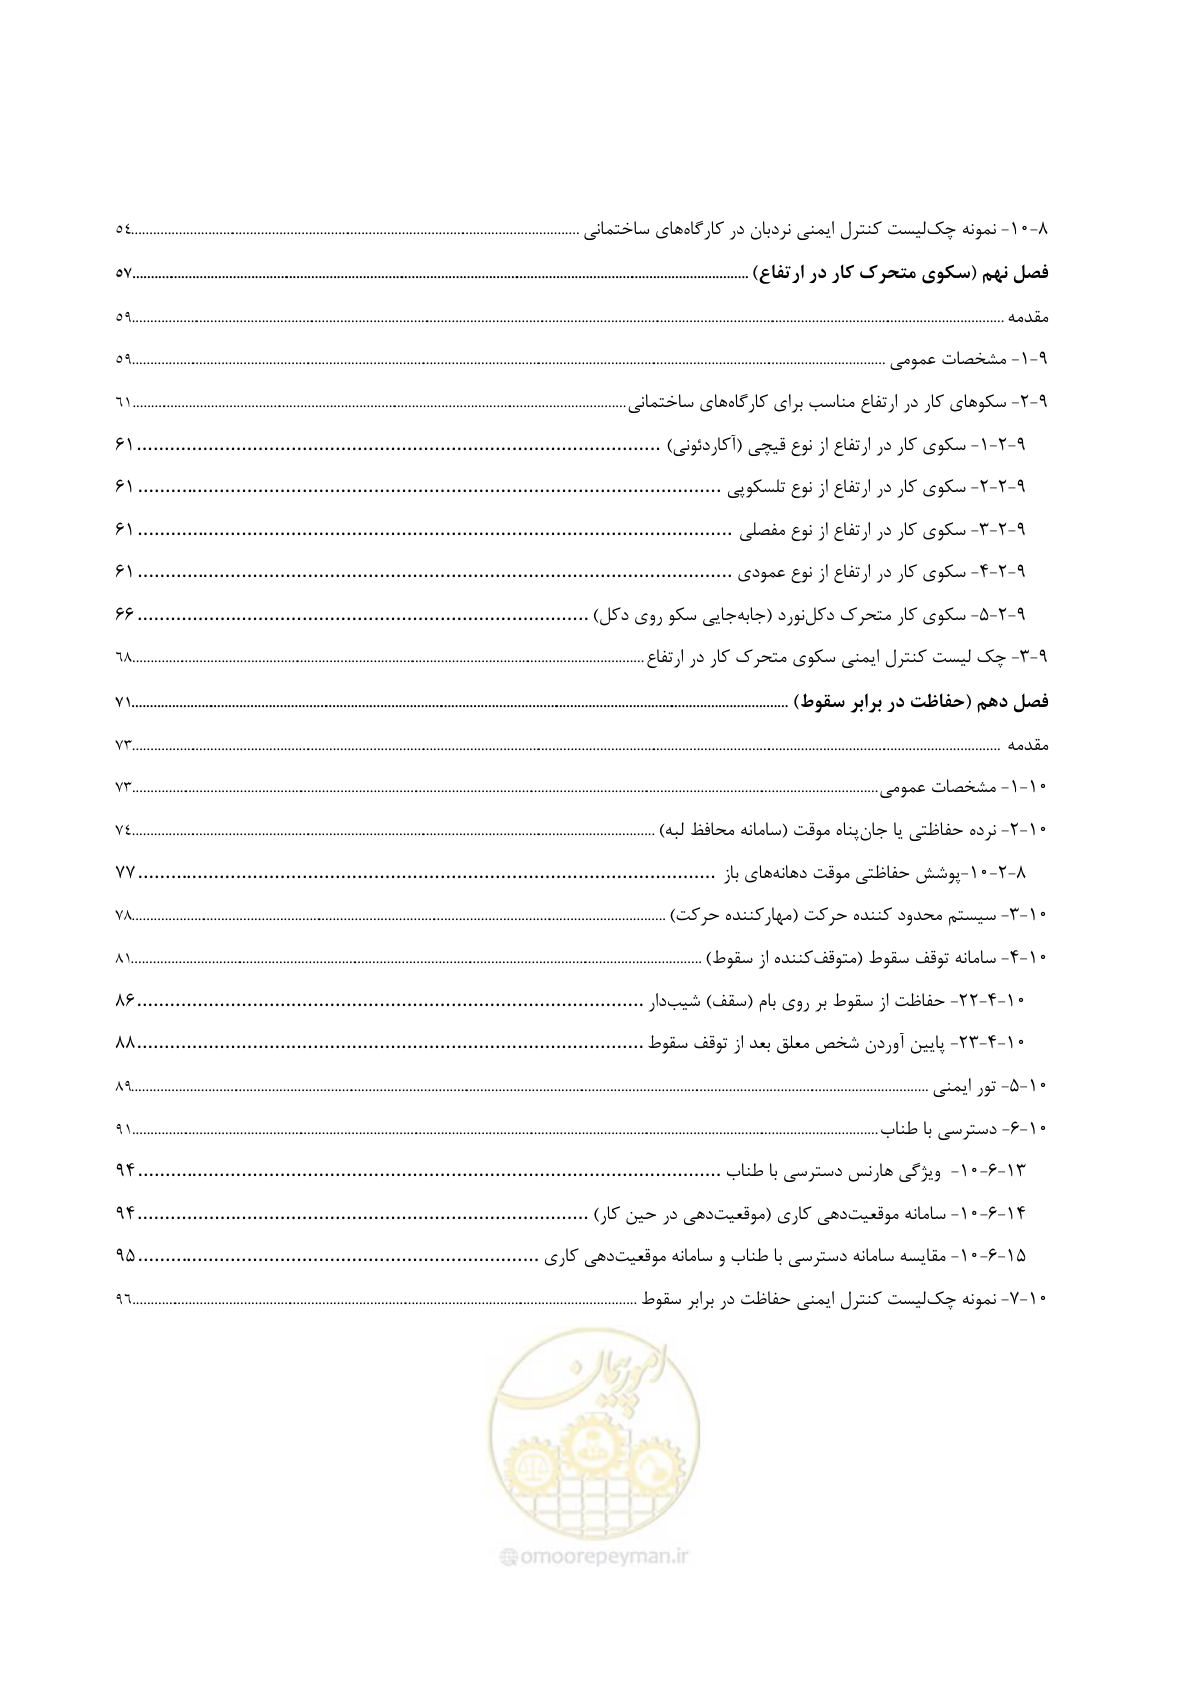 ۸-۱۰- نمونه چک‌لیست کنترل ایمنی نردبان در کارگاه‌های ساختمانی ................ ٥٤
فصل نهم (سکوی متحرک کار در ارتفاع) ................ ۵۷
مقدمه ................ ٥٩
۹-۱- مشخصات عمومی ................ ٥٩
۹-۲- سکوهای کار در ارتفاع مناسب برای کارگاه‌های ساختمانی ................ ٦١
۹-۲-۱- سکوی کار در ارتفاع از نوع قیچی (آکاردئونی) ................ ۶۱
۹-۲-۲- سکوی کار در ارتفاع از نوع تلسکوپی ................ ۶۱
۹-۲-۳- سکوی کار در ارتفاع از نوع مفصلی ................ ۶۱
۹-۲-۴- سکوی کار در ارتفاع از نوع عمودی ................ ۶۱
۹-۲-۵- سکوی کار متحرک دکل‌نورد (جابه‌جایی سکو روی دکل) ................ ۶۶
۹-۳- چک لیست کنترل ایمنی سکوی متحرک کار در ارتفاع ................ ٦٨
فصل دهم (حفاظت در برابر سقوط) ................ ۷۱
مقدمه ................ ٧٣
۱۰-۱- مشخصات عمومی ................ ٧٣
۱۰-۲- نرده حفاظتی یا جان‌پناه موقت (سامانه محافظ لبه) ................ ٧٤
۱۰-۲-۸-پوشش حفاظتی موقت دهانه‌های باز ................ ۷۷
۱۰-۳- سیستم محدود کننده حرکت (مهارکننده حرکت) ................ ٧٨
۱۰-۴- سامانه توقف سقوط (متوقف‌کننده از سقوط) ................ ٨١
۱۰-۴-۲۲- حفاظت از سقوط بر روی بام (سقف) شیب‌دار ................ ۸۶
۱۰-۴-۲۳- پایین آوردن شخص معلق بعد از توقف سقوط ................ ۸۸
۱۰-۵- تور ایمنی ................ ٨٩
۱۰-۶- دسترسی با طناب ................ ٩١
۱۰-۶-۱۳- ویژگی هارنس دسترسی با طناب ................ ۹۴
۱۰-۶-۱۴- سامانه موقعیت‌دهی کاری (موقعیت‌دهی در حین کار) ................ ۹۴
۱۰-۶-۱۵- مقایسه سامانه دسترسی با طناب و سامانه موقعیت‌دهی کاری ................ ۹۵
۱۰-۷- نمونه چک‌لیست کنترل ایمنی حفاظت در برابر سقوط ................ ٩٦
امور پیمان
@omoorepeyman.ir